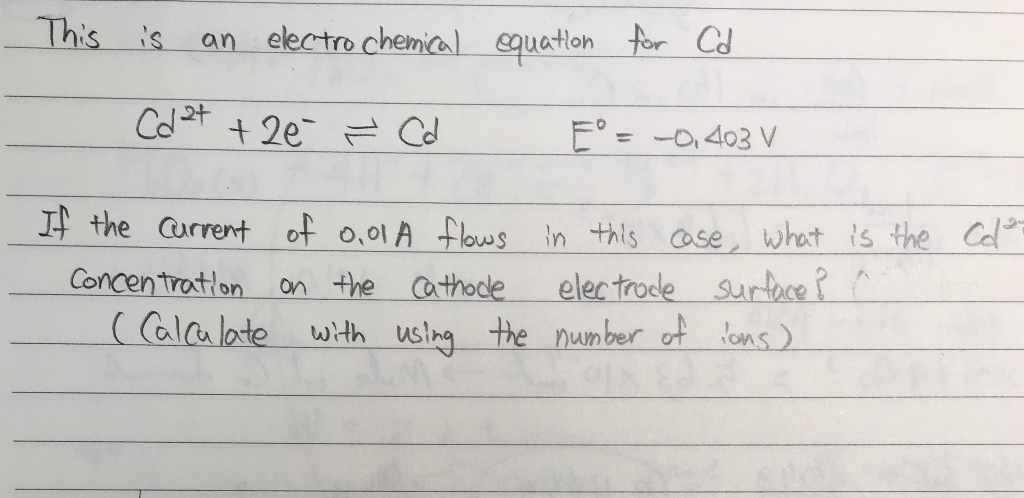 This is an electrochemical equation for Cd
Cd²⁺ + 2e⁻ ⇌ Cd E° = -0.403 V
If the current of 0.01 A flows in this case, what is the Cd²⁺
concentration on the cathode electrode surface?
(Calculate with using the number of ions)